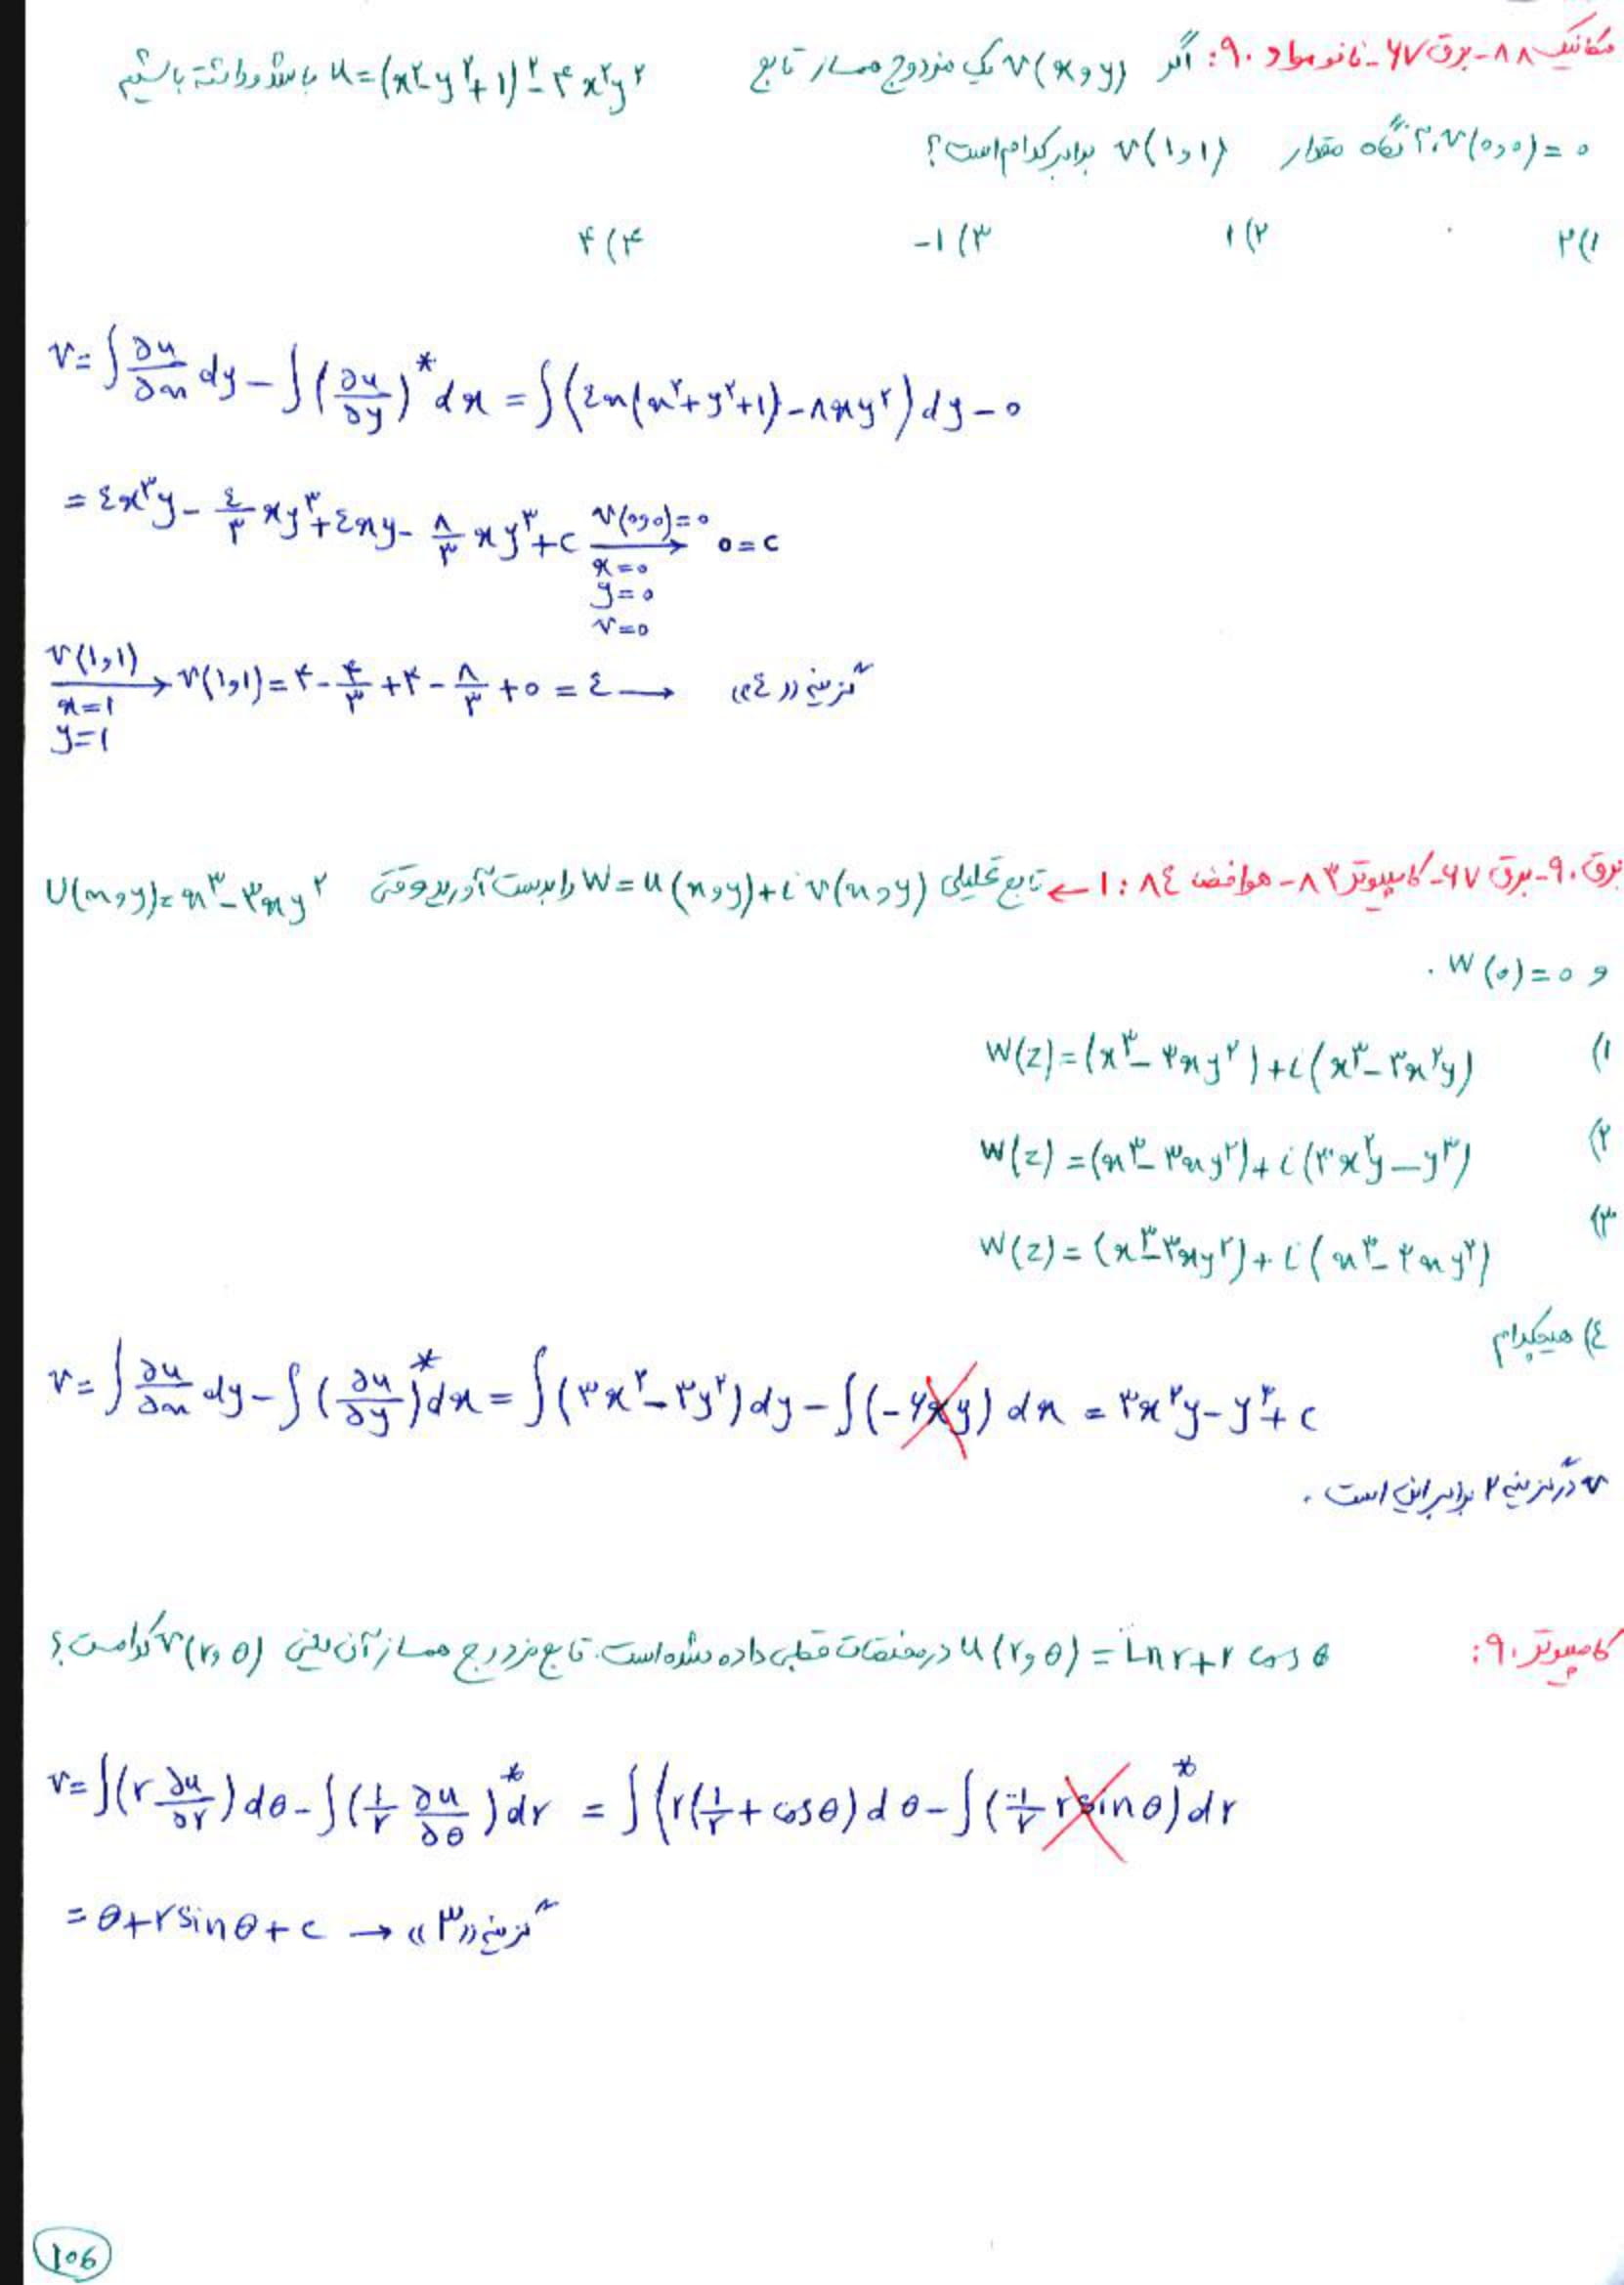 مکانیک ۸۸ - برق ۶۷ - نانو مواد ۹۰: اگر v(x,y) یک مزدوج همساز تابع u=(x²-y²+1)²-۴x²y² باشد و داشته باشیم
v(0,0)=0، آنگاه مقدار v(1,1) برابر کدام است؟
۱) ۲ ۲) ۱ ۳) -۱ ۴) ۴
v=∫ ∂u/∂x dy - ∫(∂u/∂y)* dx = ∫(٤x(x²+y²+1)-۸xy²)dy-0
= ٤x³y - ٤/۳ xy³+٤xy - ۸/۳ xy³+c v(0,0)=0 → 0=c
x=0
y=0
v=0
v(1,1) → v(1,1)=۴-۴/۳+۴-۸/۳+0=٤ → گزینه «٤»
x=1
y=1
برق ۹۰ - برق ۶۷ - کامپیوتر ۸۳ - هوافضا ۸٤: ۱ ← تابع تحلیلی W=u(x,y)+iv(x,y) را بدست آورید وقتی U(x,y)=x³-۳xy²
و W(0)=0.
۱) W(z)=(x³-۳xy²)+i(x³-۳x²y)
۲) W(z)=(x³-۳xy²)+i(۳x²y-y³)
۳) W(z)=(x³-۳xy²)+i(x³-۳xy²)
٤) هیچکدام
v=∫ ∂u/∂x dy-∫(∂u/∂y)* dx=∫(۳x²-۳y²)dy-∫(-۶xy)dx=۳x²y-y³+c
v در گزینه ۲ برابر این است.
کامپیوتر ۹۰: u(r,θ)=Lnr+r cosθ در مختصات قطبی داده شده است. تابع مزدوج همساز آن یعنی v(r,θ) کدامست؟
v=∫(r ∂u/∂r)dθ-∫(1/r ∂u/∂θ)* dr = ∫(r(1/r+cosθ)dθ-∫(-1/r rsinθ)* dr
=θ+rsinθ+c → گزینه «۳»
106